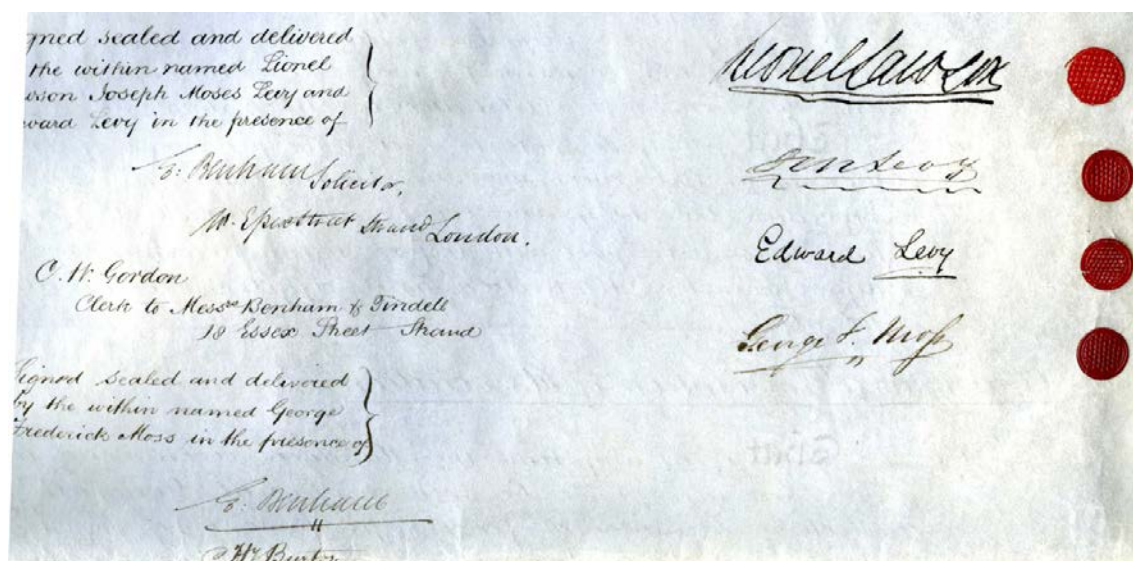 gned sealed and delivered
the within named Lionel
wson Joseph Moses Levy and
ward Levy in the presence of
E. Benham Solicitor,
18. Essex Street Strand London.
C. W. Gordon
Clerk to Messrs Benham & Tindell
18 Essex Street Strand
Signed sealed and delivered
by the within named George
Frederick Moss in the presence of
E. Benham
Burton
Lionel Lawson
Levy
Edward Levy
George F. Moss